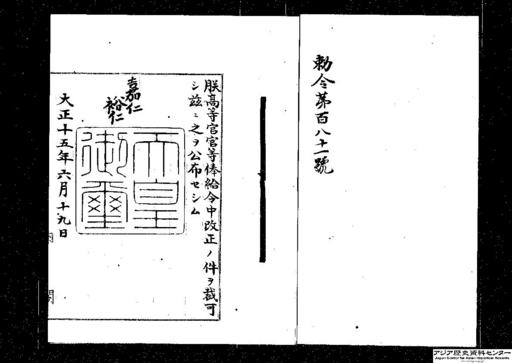 勅令第百八十一號
朕高等官官等俸給令中改正ノ件ヲ裁可
シ茲ニ之ヲ公布セシム
嘉仁
裕仁
天皇
御璽
大正十五年六月十九日
内閣
アジア歴史資料センター
Japan Center for Asian Historical Records